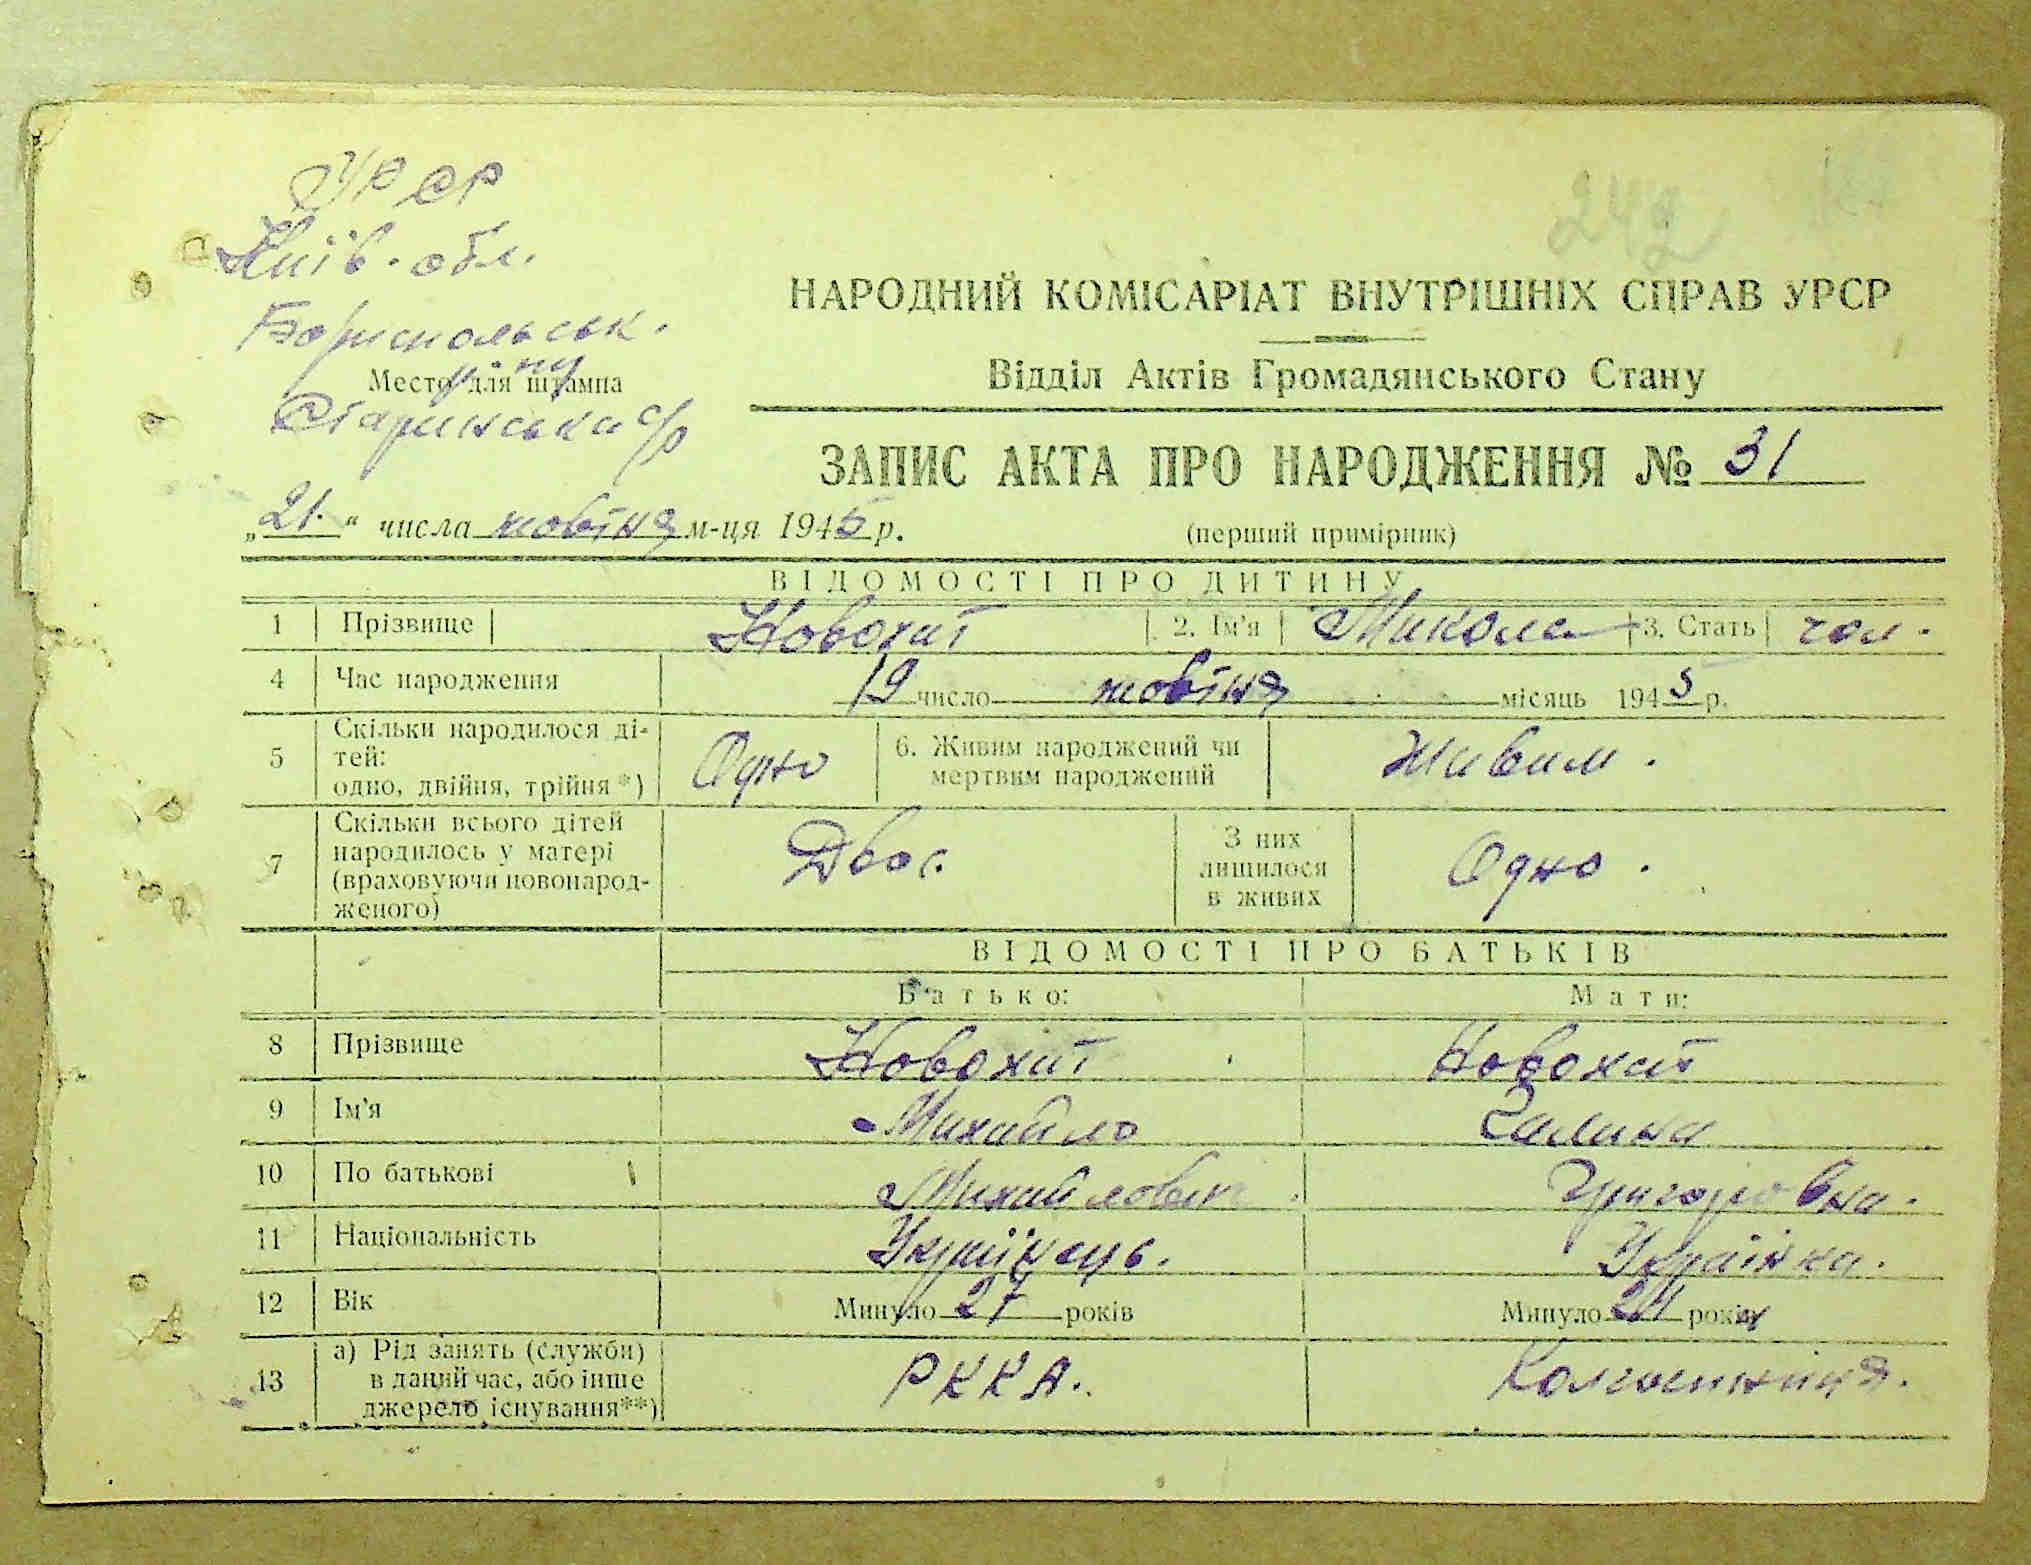 УРСР
242
Київ. обл.
Бориспольськ.
р-ну
Место для штампа
Старинська с/р
НАРОДНИЙ КОМІСАРІАТ ВНУТРІШНІХ СПРАВ УРСР
Відділ Актів Громадянського Стану
ЗАПИС АКТА ПРО НАРОДЖЕННЯ № 31
„21.“ числа жовтня м-ця 1945 р.
(перший примірник)
ВІДОМОСТІ ПРО ДИТИНУ
1 Прізвище Новохат 2. Ім'я Микола 3. Стать чол.
4 Час народження 19 число жовтня місяць 1945 р.
5 Скільки народилося дітей: одно, двійня, трійня *) Одно 6. Живим народжений чи мертвим народжений Живим.
7 Скільки всього дітей народилось у матері (враховуючи новонародженого) Двоє. З них лишилося в живих Одно.
ВІДОМОСТІ ПРО БАТЬКІВ
Батько: Мати:
8 Прізвище Новохат Новохат
9 Ім'я Михайло Галина
10 По батькові Михайлович Григоровна.
11 Національність Українець. Українка.
12 Вік Минуло 27 років Минуло 24 роки
13 а) Рід занять (служби) в даний час, або інше джерело існування**) РККА. Колгоспниця.